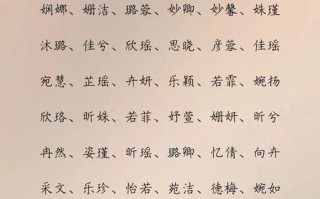 娴娜、姗洁、璐蓉、妙卿、妙馨、姝瑾
沐璐、佳兮、欣瑶、思晓、彦蓉、佳瑶
宛慧、芷瑶、卉妍、乐颖、若霏、婉扬
欣珞、昕姝、若菲、妤萱、姗妍、昕兮
冉然、姿瑾、昕瑶、璐卿、忆倩、向卉
采文、乐珍、怡若、苑洁、德梅、婉如